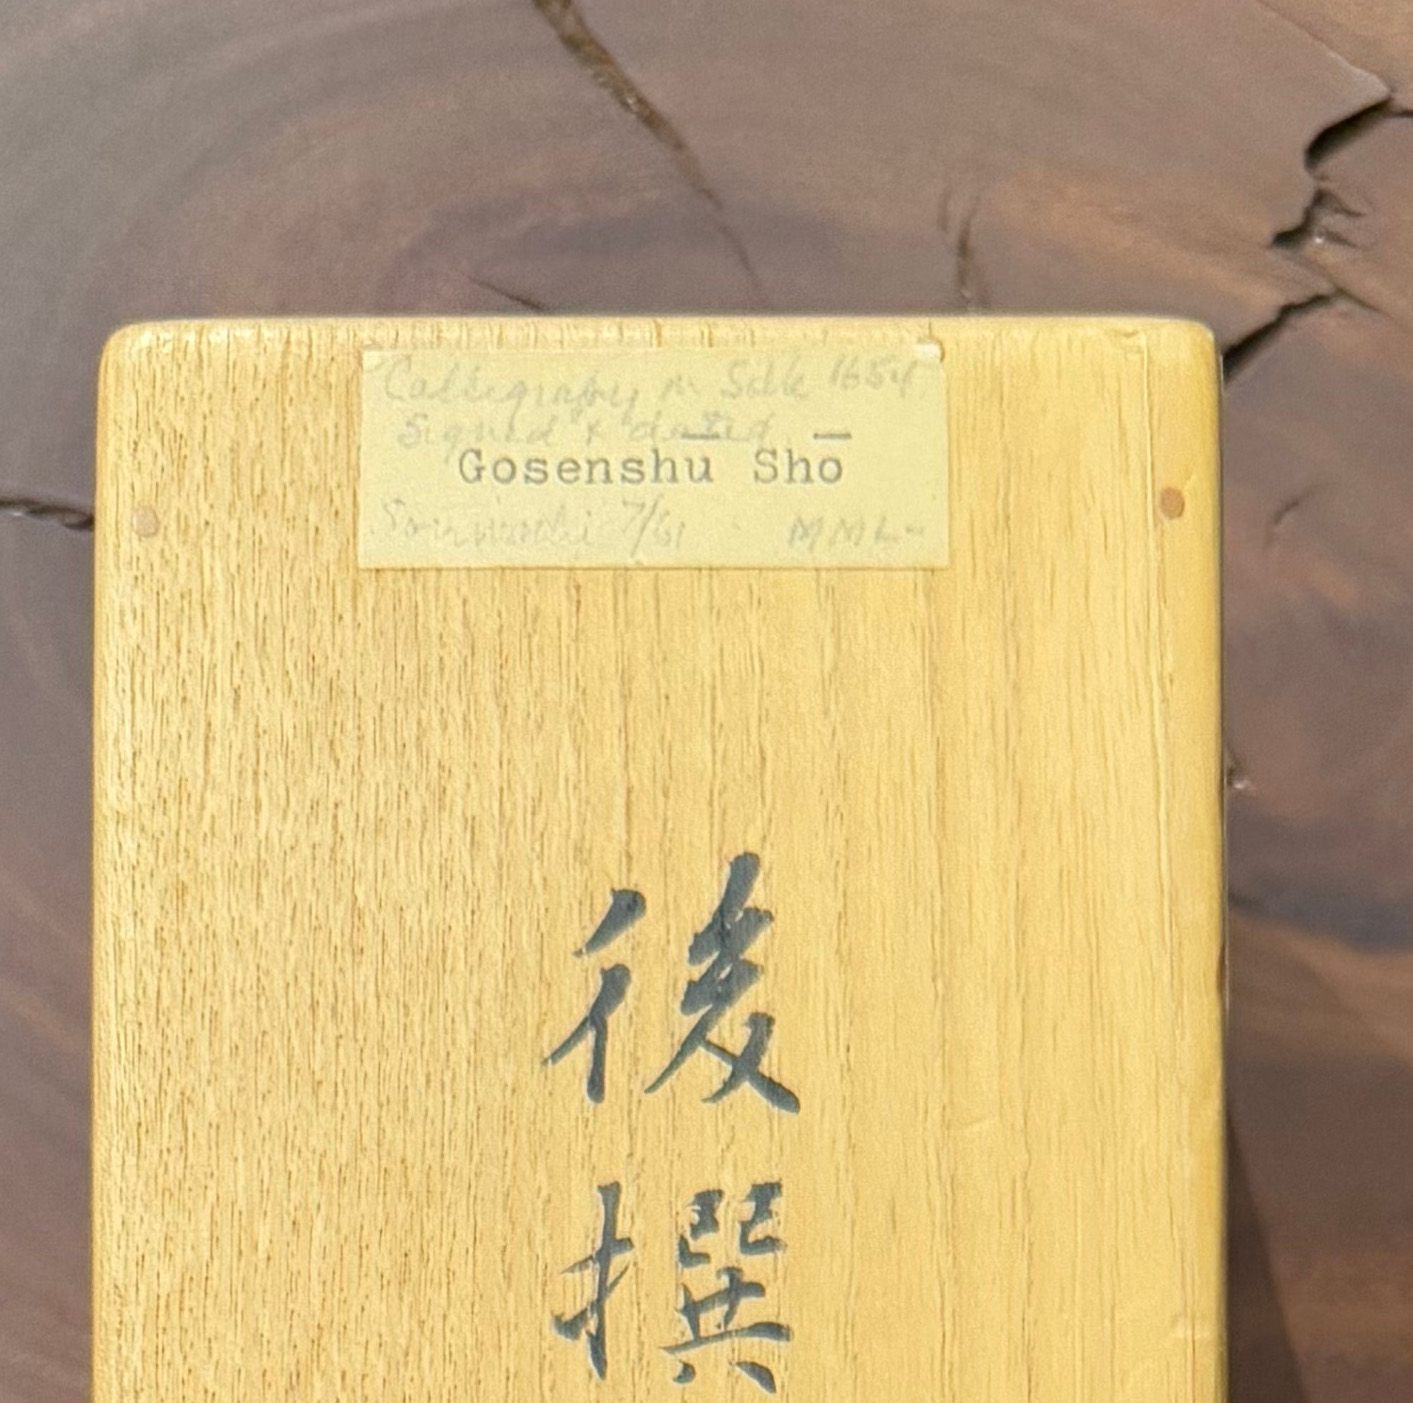 Calligraphy on Silk 1654
Signed & dated
Gosenshū Shō
7/61 MML
後
撰